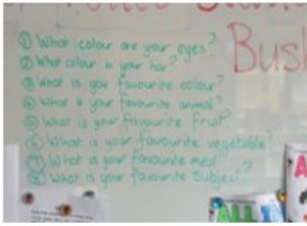 ① What colour are your eyes?
② What colour is your hair?
③ What is you favourite colour?
④ What is your favourite animal?
⑤ What is your favourite fruit?
⑥ What is your favourite vegetable?
⑦ What is your favourite meat?
⑧ What is your favourite subject?
Bus
ALL